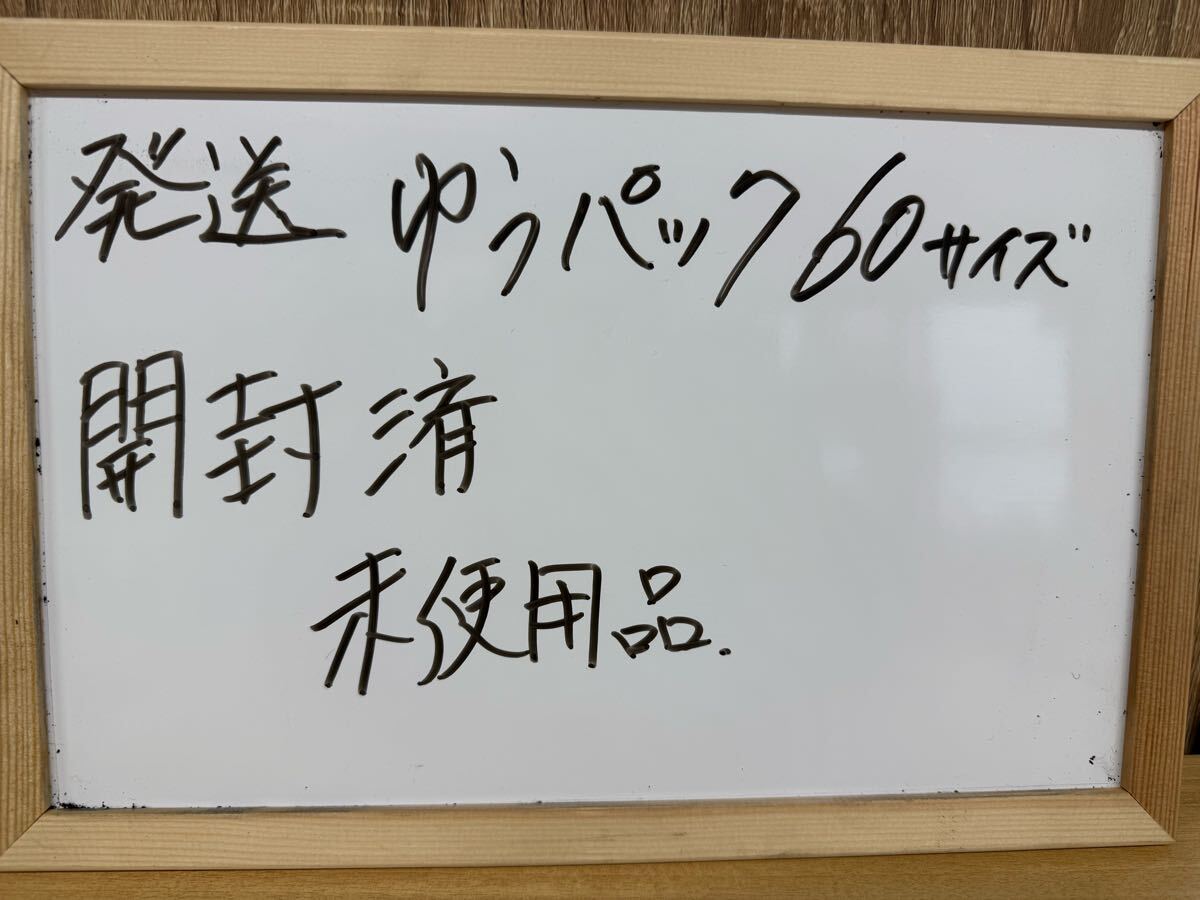 発送 ゆうパック60サイズ
開封済
未使用品.